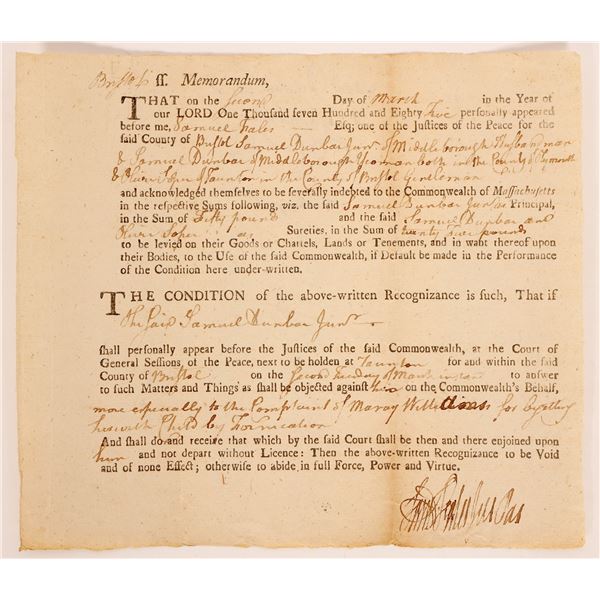 Bristol ss. Memorandum,
THAT on the Second Day of March in the Year of
our LORD One Thousand seven Hundred and Eighty Five personally appeared
before me, Samuel Fales Esq; one of the Justices of the Peace for the
said County of Bristol Samuel Dunbar Junr. of Middleborough Husbandman
& Samuel Dunbar of Middleborough Yeoman both in the County of Plymouth
& Oliver Soper of Taunton in the County of Bristol Gentleman
and acknowledged themselves to be severally indepted to the Commonwealth of Massachusetts
in the respective Sums following, viz. the said Samuel Dunbar Junr as Principal,
in the Sum of Fifty pounds and the said Samuel Dunbar and
Oliver Soper as Sureties, in the Sum of twenty Five pounds
to be levied on their Goods or Chattels, Lands or Tenements, and in want thereof upon
their Bodies, to the Use of the said Commonwealth, if Default be made in the Performance
of the Condition here under-written.
THE CONDITION of the above-written Recognizance is such, That if
the said Samuel Dunbar Junr
shall personally appear before the Justices of the said Commonwealth, at the Court of
General Sessions, of the Peace, next to be holden at Taunton for and within the said
County of Bristol on the Second Tuesday of March to answer
to such Matters and Things as shall be objected against him on the Commonwealth's Behalf,
more especially to the Complaint of for begetting
her with Child by Fornication
And shall do and receive that which by the said Court shall be then and there enjoined upon
him and not depart without Licence: Then the above-written Recognizance to be Void
and of none Effect; otherwise to abide in full Force, Power and Virtue.
Just Pac